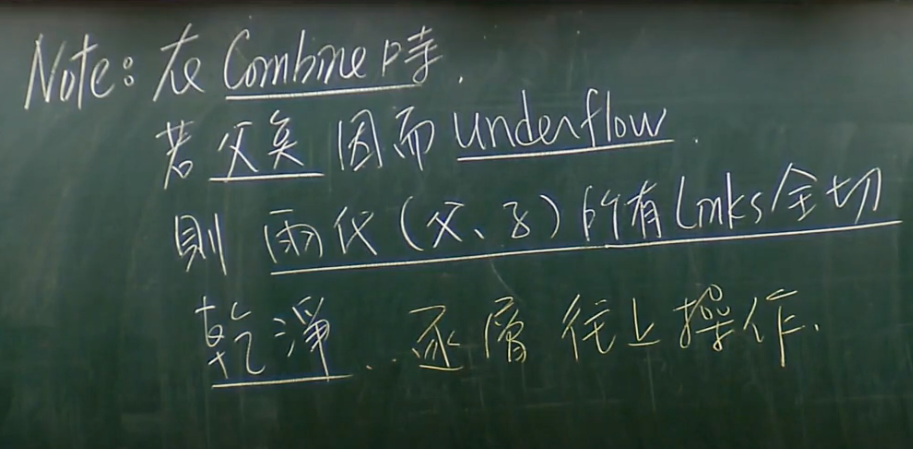 Note: 在 Combine 時.
若 父矣 因而 underflow.
則 兩代(父、子)所有 Links 全切
乾淨..逐層往上操作.